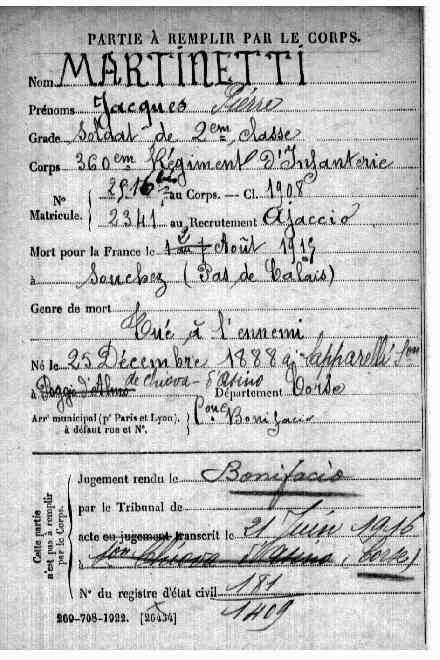 PARTIE À REMPLIR PAR LE CORPS.
Nom MARTINETTI
Prénoms Jacques Pierre
Grade Soldat de 2em classe
Corps 360em Régiment D'Infanterie
N° 2516 au Corps. — Cl. 1908
Matricule. 2341 au Recrutement Ajaccio
Mort pour la France le 2 Août 1915
à Souchez (Pas de Calais)
Genre de mort
Tué à l'ennemi
Né le 25 Décembre 1888 à
à Poggio d'Albino Département Corse
Arrt municipal (pr Paris et Lyon).
à défaut rue et N°. Bonifacio
Cette partie
n'est pas à remplir
par le Corps.
Jugement rendu le Bonifacio
par le Tribunal de
acte ou jugement transcrit le 21 Juin 1916
à (Corse)
N° du registre d'état civil 181
1409
260-708-1922. [26434]